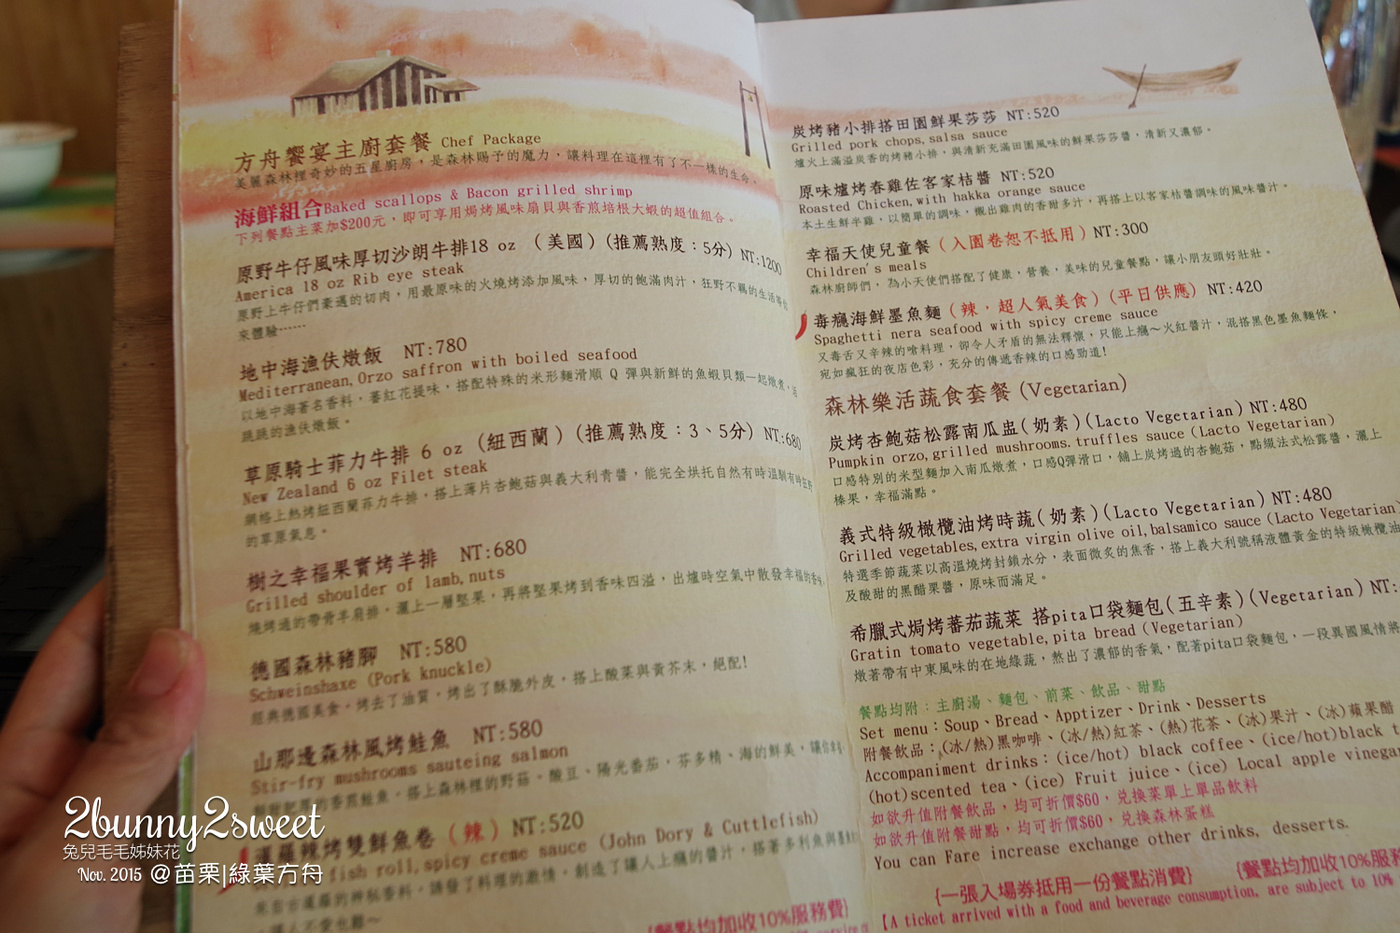 方舟饗宴主廚套餐 Chef Package
美麗森林裡奇妙的五星廚房，是森林賜予的魔力，讓料理在這裡有了不一樣的生命。
海鮮組合Baked scallops & Bacon grilled shrimp
下列餐點主菜加$200元，即可享用焗烤風味扇貝與香煎培根大蝦的超值組合。
原野牛仔風味厚切沙朗牛排18 oz （美國）(推薦熟度：5分) NT:1200
America 18 oz Rib eye steak
原野上牛仔們豪邁的切肉，用最原味的火燒烤添加風味，厚切的飽滿肉汁，狂野不羈的生活等你
來體驗……
地中海漁伕燉飯 NT:780
Mediterranean, Orzo saffron with boiled seafood
以地中海著名香料，蕃紅花提味，搭配特殊的米形麵滑順 Q 彈與新鮮的魚蝦貝類一起燉煮，活
跳跳的漁伕燉飯。
草原騎士菲力牛排 6 oz (紐西蘭) (推薦熟度：3、5分) NT:680
New Zealand 6 oz Filet steak
網格上熱烤紐西蘭菲力牛排，搭上薄片杏鮑菇與義大利青醬，能完全烘托自然有時溫馴有時狂野
的草原氣息。
樹之幸福果實烤羊排 NT:680
Grilled shoulder of lamb, nuts
燒烤過的帶骨羊肩排，灑上一層堅果，再將堅果烤到香味四溢，出爐時空氣中散發幸福的香味
德國森林豬腳 NT:580
Schweinshaxe (Pork knuckle)
經典德國美食，烤去了油質，烤出了酥脆外皮，搭上酸菜與黃芥末，絕配!
山那邊森林風烤鮭魚 NT:580
Stir-fry mushrooms sauteing salmon
的香煎鮭魚，搭上森林裡的野菇，酸豆、陽光番茄，芬多精、海的鮮美，讓你
辣烤雙鮮魚卷（辣）NT:520
fish roll, spicy creme sauce (John Dory & Cuttlefish)
的神秘香料，誘發了料理的激情，創造了讓人上癮的醬汁，搭著多利魚與
{餐點均加收10%服務費}
炭烤豬小排搭田園鮮果莎莎 NT:520
Grilled pork chops, salsa sauce
爐火上滿溢炭香的烤豬小排，與清新充滿田園風味的鮮果莎莎醬，清新又濃郁。
原味爐烤春雞佐客家桔醬 NT:520
Roasted Chicken, with hakka orange sauce
本土生鮮半雞，以簡單的調味，襯出雞肉的香甜多汁，再搭上以客家桔醬調味的風味醬汁。
幸福天使兒童餐（入園卷恕不抵用）NT:300
Children's meals
森林廚師們，為小天使們搭配了健康，營養，美味的兒童餐點，讓小朋友頭好壯壯。
毒癮海鮮墨魚麵（辣．超人氣美食）(平日供應) NT:420
Spaghetti nera seafood with spicy creme sauce
又毒舌又辛辣的嗆料理，卻令人矛盾的無法釋懷，只能上癮～火紅醬汁，混搭黑色墨魚麵條，
宛如瘋狂的夜店色彩，充分的傳遞香辣的口感勁道!
森林樂活蔬食套餐 (Vegetarian)
炭烤杏鮑菇松露南瓜盅(奶素)(Lacto Vegetarian) NT:480
Pumpkin orzo, grilled mushrooms. truffles sauce (Lacto Vegetarian)
口感特別的米型麵加入南瓜燉煮，口感Q彈滑口，鋪上炭烤過的杏鮑菇，點綴法式松露醬，灑上
榛果，幸福滿點。
義式特級橄欖油烤時蔬(奶素)(Lacto Vegetarian) NT:480
Grilled vegetables, extra virgin olive oil, balsamico sauce (Lacto Vegetarian)
特選季節蔬菜以高溫燒烤封鎖水分，表面微炙的焦香，搭上義大利號稱液體黃金的特級橄欖油
及酸甜的黑醋果醬，原味而滿足。
希臘式焗烤蕃茄蔬菜 搭pita口袋麵包(五辛素)(Vegetarian) NT:
Gratin tomato vegetable, pita bread (Vegetarian)
燉著帶有中東風味的在地綠蔬，熬出了濃郁的香氣，配著pita口袋麵包，一段異國風情
餐點均附：主廚湯、麵包、前菜、飲品、甜點
Set menu：Soup、Bread、Apptizer、Drink、Desserts
附餐飲品：(冰/熱)黑咖啡、(冰/熱)紅茶、(熱)花茶、(冰)果汁、(冰)蘋果醋
Accompaniment drinks：(ice/hot) black coffee、(ice/hot)black t
(hot)scented tea、(ice) Fruit juice、(ice) Local apple vinegar
如欲升值附餐飲品，均可折價$60，兌換菜單上單品飲料
如欲升值附餐甜點，均可折價$60，兌換森林蛋糕
You can Fare increase exchange other drinks, desserts.
{一張入場券抵用一份餐點消費} {餐點均加收10%服務
【A ticket arrived with a food and beverage consumption, are subject to 10%
2bunny2sweet
兔兒毛毛姊妹花
Nov. 2015 @苗栗|綠葉方舟